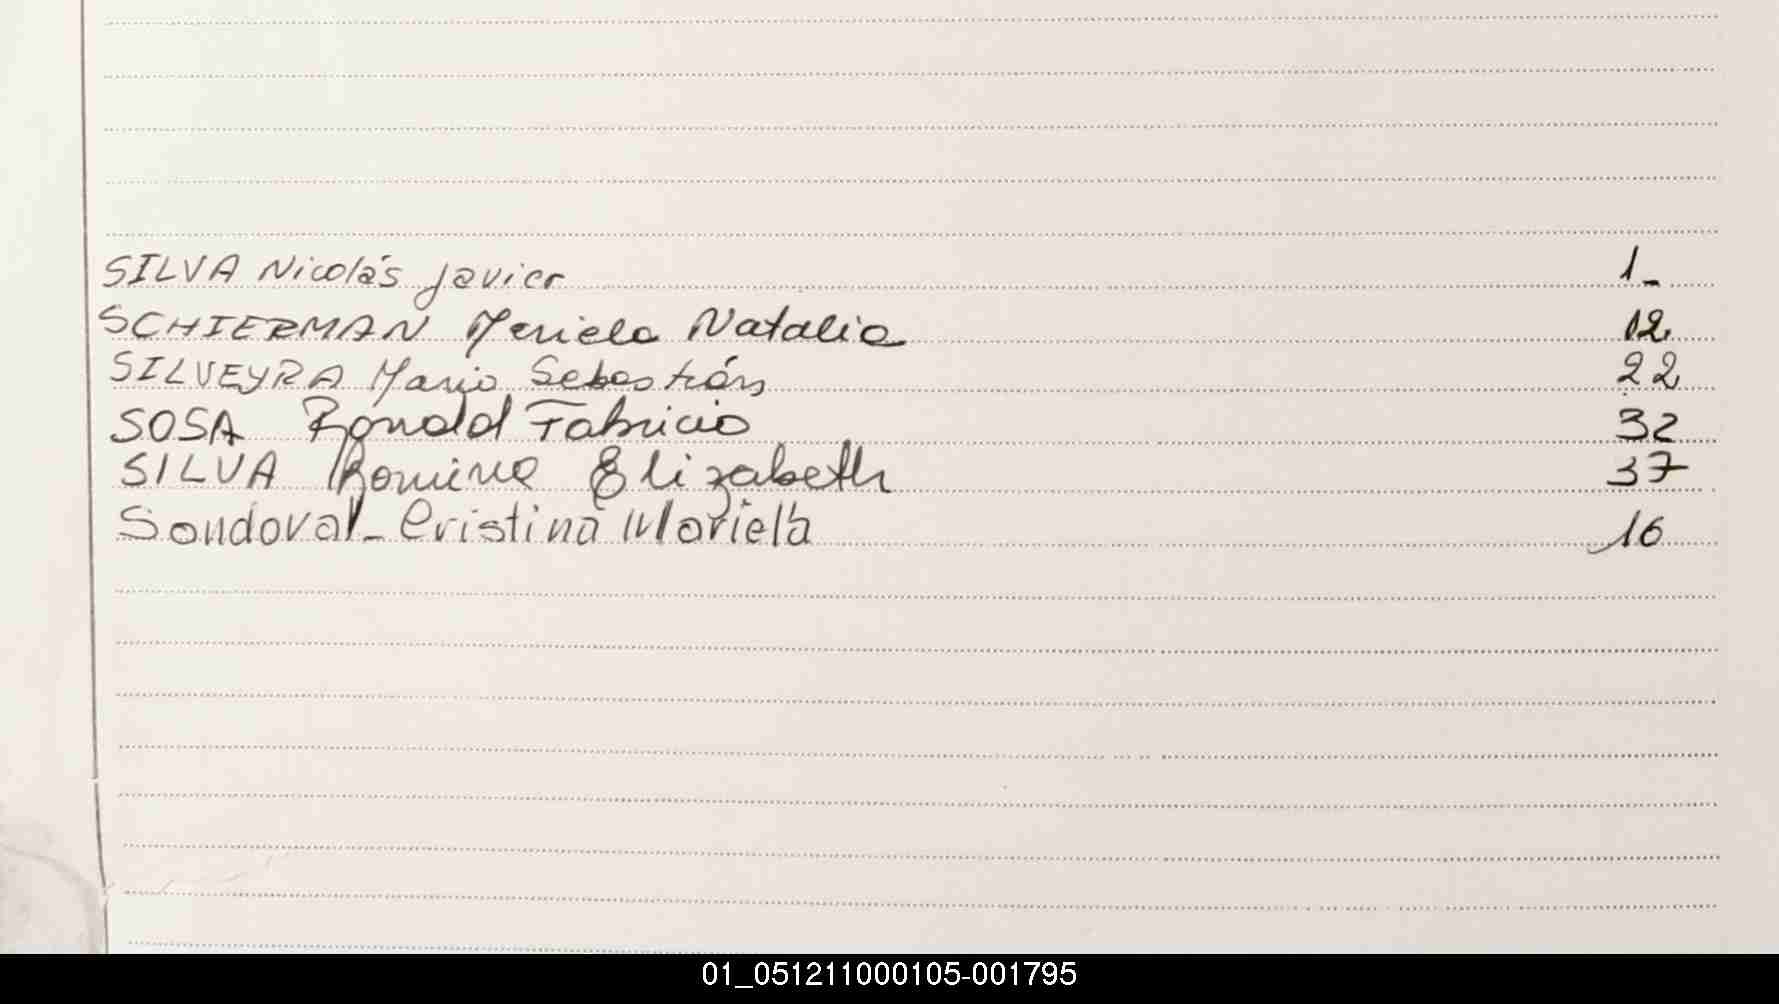 SILVA Nicolás Javier 1_
SCHIERMAN Mariela Natalia 12
SILVEYRA Mario Sebastián 22
SOSA Ronald Fabricio 32
SILVA Romina Elizabeth 37
Sandoval_ Cristina Mariela 16
01_051211000105-001795